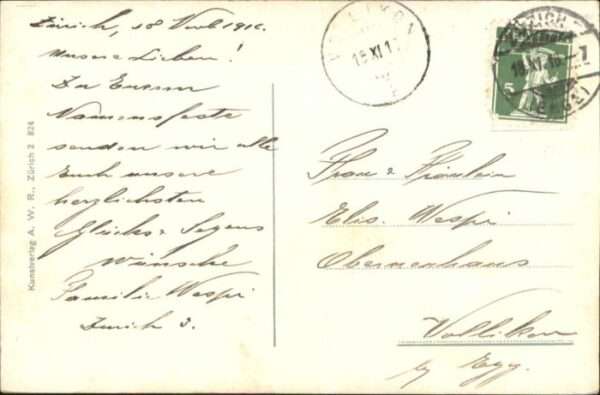 Zürich, 18 Novb 1916.
Unsere Lieben!
Zu Eurem
Namensfeste
senden wir alle
Euch unsere
herzlichsten
Glücks & Segens
wünsche
Familie Wespi
Zürich 3.
Kunstverlag A. W. R., Zürich 2 824
18 XI 1
5
Frau & Fräulein
Elis. Wespi
Vollikon
by Egg.